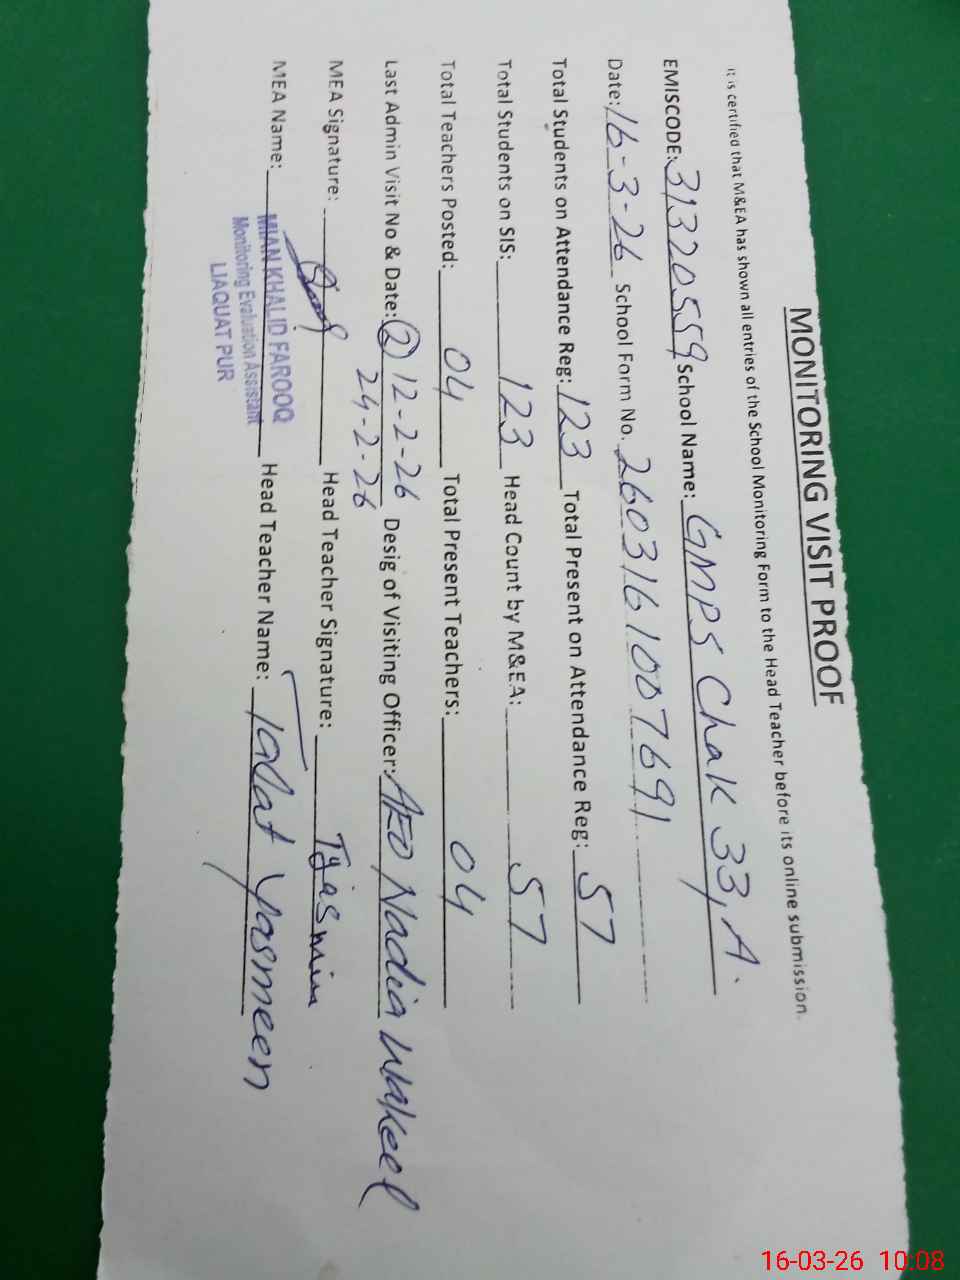 MONITORING VISIT PROOF
It is certified that M&EA has shown all entries of the School Monitoring Form to the Head Teacher before its online submission.
EMISCODE: 31320559 School Name: GMPS Chak 33, A.
Date: 16-3-26 School Form No. 2603161007691
Total Students on Attendance Reg: 123 Total Present on Attendance Reg: 57
Total Students on SIS: 123 Head Count by M&EA: 57
Total Teachers Posted: 04 Total Present Teachers: 04
Last Admin Visit No & Date: (2) 12-2-26 Desig of Visiting Officer: AEO Nadia Wakeel
24-2-26
MEA Signature: Head Teacher Signature:
MEA Name: MIAN KHALID FAROOQ Head Teacher Name: Talat Yasmeen
Monitoring Evaluation Assistant
LIAQUAT PUR
16-03-26 10:08